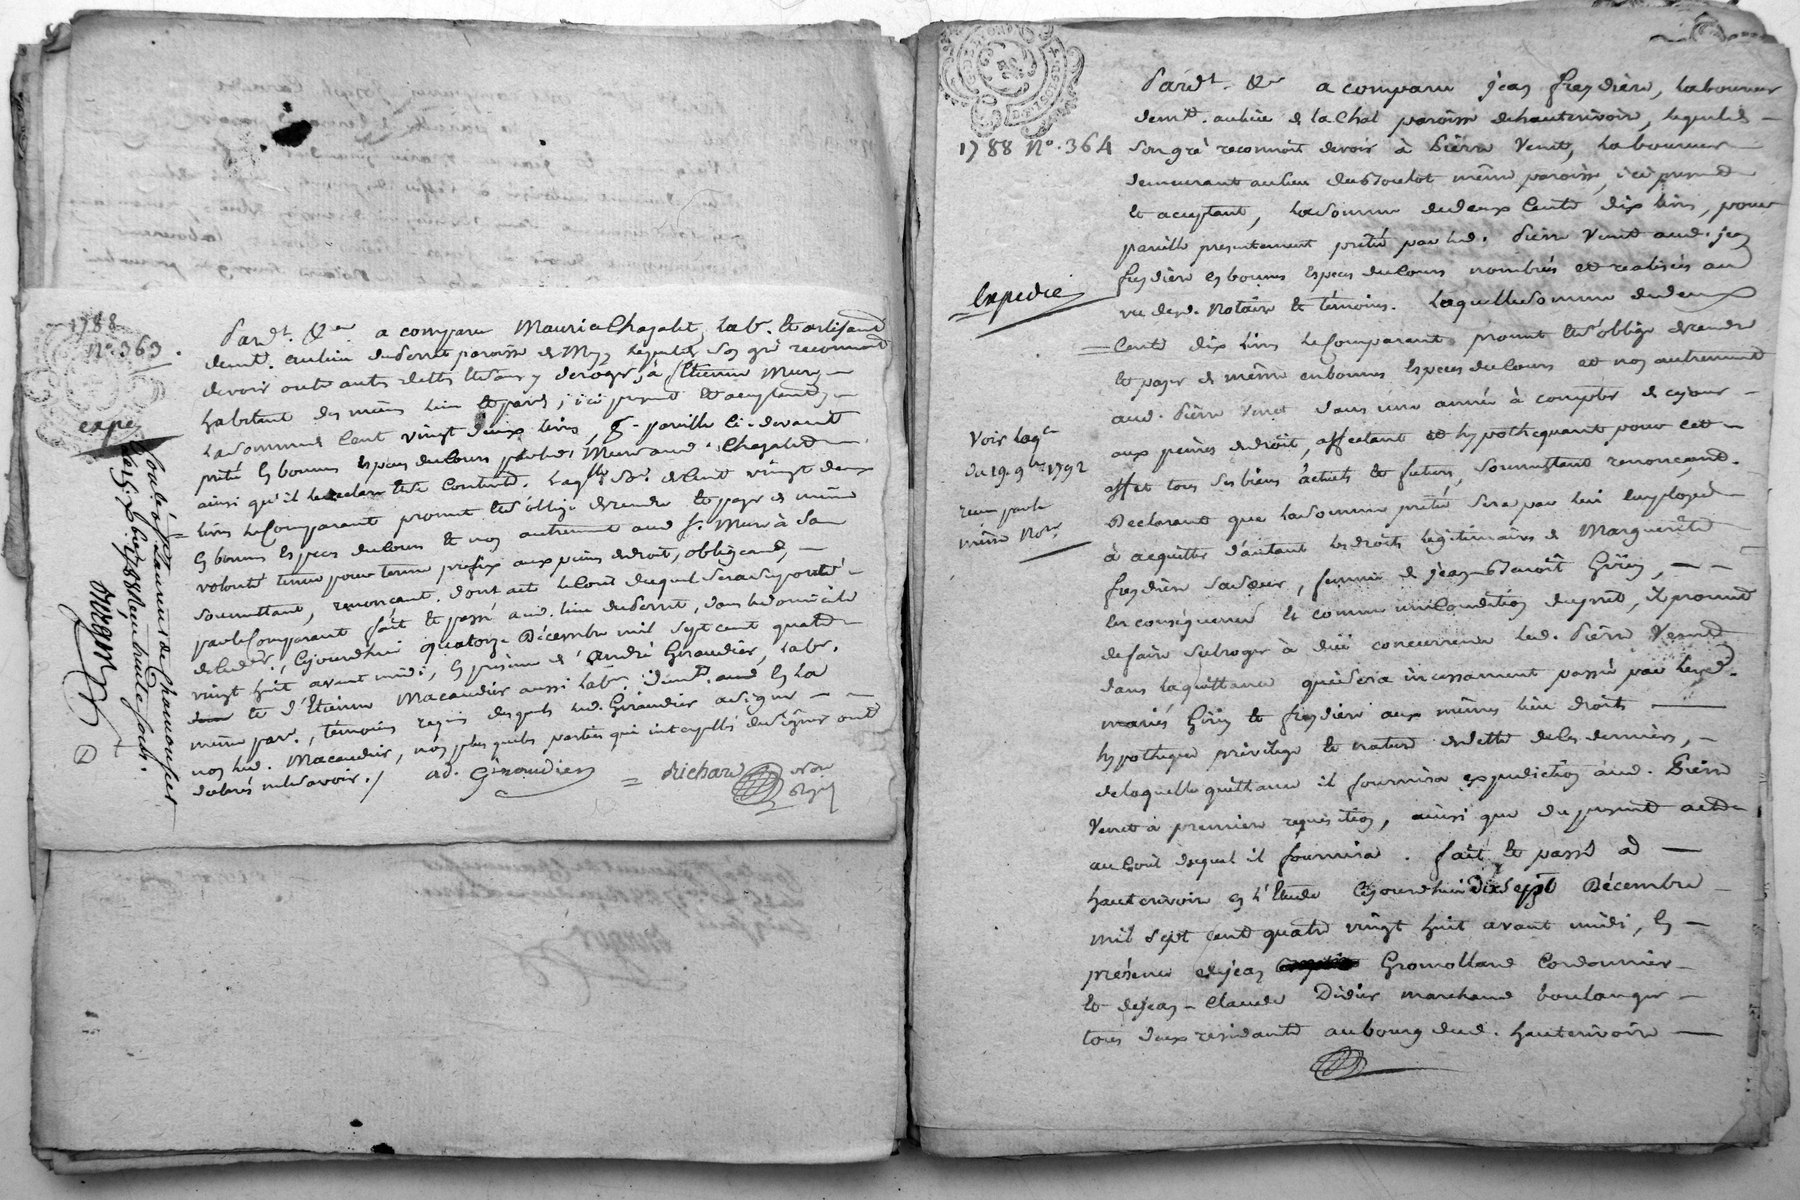 1788
N°. 363.
expé
Pard.t &.er a comparu Maurice Chazalet, lab.r et artisand
demt. au lieu du Serret paroisse de Mey, lequel de son gré reconnoit
devoir outre autre dette et sans y deroger, à Etienne Mure
habitant des mêmes lieu et paroi, ici present et acceptant,
la somme cent vingt deux livres, p.r pareille ci-devant
prêté en bonnes especes du cours par led. Mure aud. Chazalet
ainsi qu'il le declare et se contente. Laq.lle So.e de cent vingt deux
livres le comparant promet et s'oblige de rendre et payer de même
en bonnes especes du cours et non autrement aud. S.r Mure à sa
volonté terme pour terme prefix aux peines de droit, obligeant,
soumettant, renonçant. Dont acte le coût duquel sera suporté
par le Comparant fait et passé aud. lieu du Serret, dans le domicile
dud. , cejourdhui quatorze Décembre mil sept cent quatre
vingt huit avant midi, en présence d'André Giraudier, lab.r
et d'Etienne Macaudier aussi lab.r, demt. aud en la
même par., témoins requis desquels led. Giraudier a signé
non led. Macaudier, non plus que les parties qui interpellés de signer ont
declarés ne le savoir./ ad. Giraudier = Richard Nore
Royal
Controlé à S.t Laurent de Chamousset
le 25 Xbre 1788 Reçu huit sols.
Mure
1788 N°. 364
expedié
Voir la q.ce
du 19 9bre 1792
reçu par le
même No.re
Pard.t &.er a comparu jean freydière, laboureur
demt. au lieu de la Chal paroisse de hauterivoire, lequel de
son gré reconnoit devoir à Pierre Venet, laboureur
demeurant au lieu du même paroisse, ici present
et acceptant, la somme de deux cents dix livres, pour
pareille presentement prêté par led. Pierre Venet aud. jean
freydière en bonnes especes du cours nombrées et realisées au
vu desd. Notaire et témoins. Laquelle somme de deux
cents dix livres le comparant promet et s'oblige de rendre
et payer de même en bonnes especes du cours et non autrement
aud. Pierre Venet dans une année à compter de ce jour
aux peines de droit, affectant et hypothequant pour cet
effet tous ses biens actuels et futurs, soumettant renonçant.
Declarant que la somme prêté sera par lui employée
à acquitter d'autant les droits légitimaires de Marguerite
freydière sa sœur, femme de jean Benoît Girin,
en conséquence et comme une condition du prêt, il promet
de faire subroger à duë concurrence led. Pierre Venet
dans la quittance qui sera incessament passée par lesd.
mariés Girin et freydière aux mêmes lieu droits
hypotheque privilege et nature de dette de ces derniers,
de laquelle quittance il fournira expedition aud. Pierre
Venet à premiere requisition, ainsi que du present acte
au coût duquel il fournira. fait et passé ad
hauterivoire en l'Etude cejourdhui dix Sept Décembre
mil sept cent quatre vingt huit avant midi, en
présence de jean Gromolland Cordonnier
et de jean-Claude Didier marchand boulanger
tous deux residants au bourg dud. hauterivoire